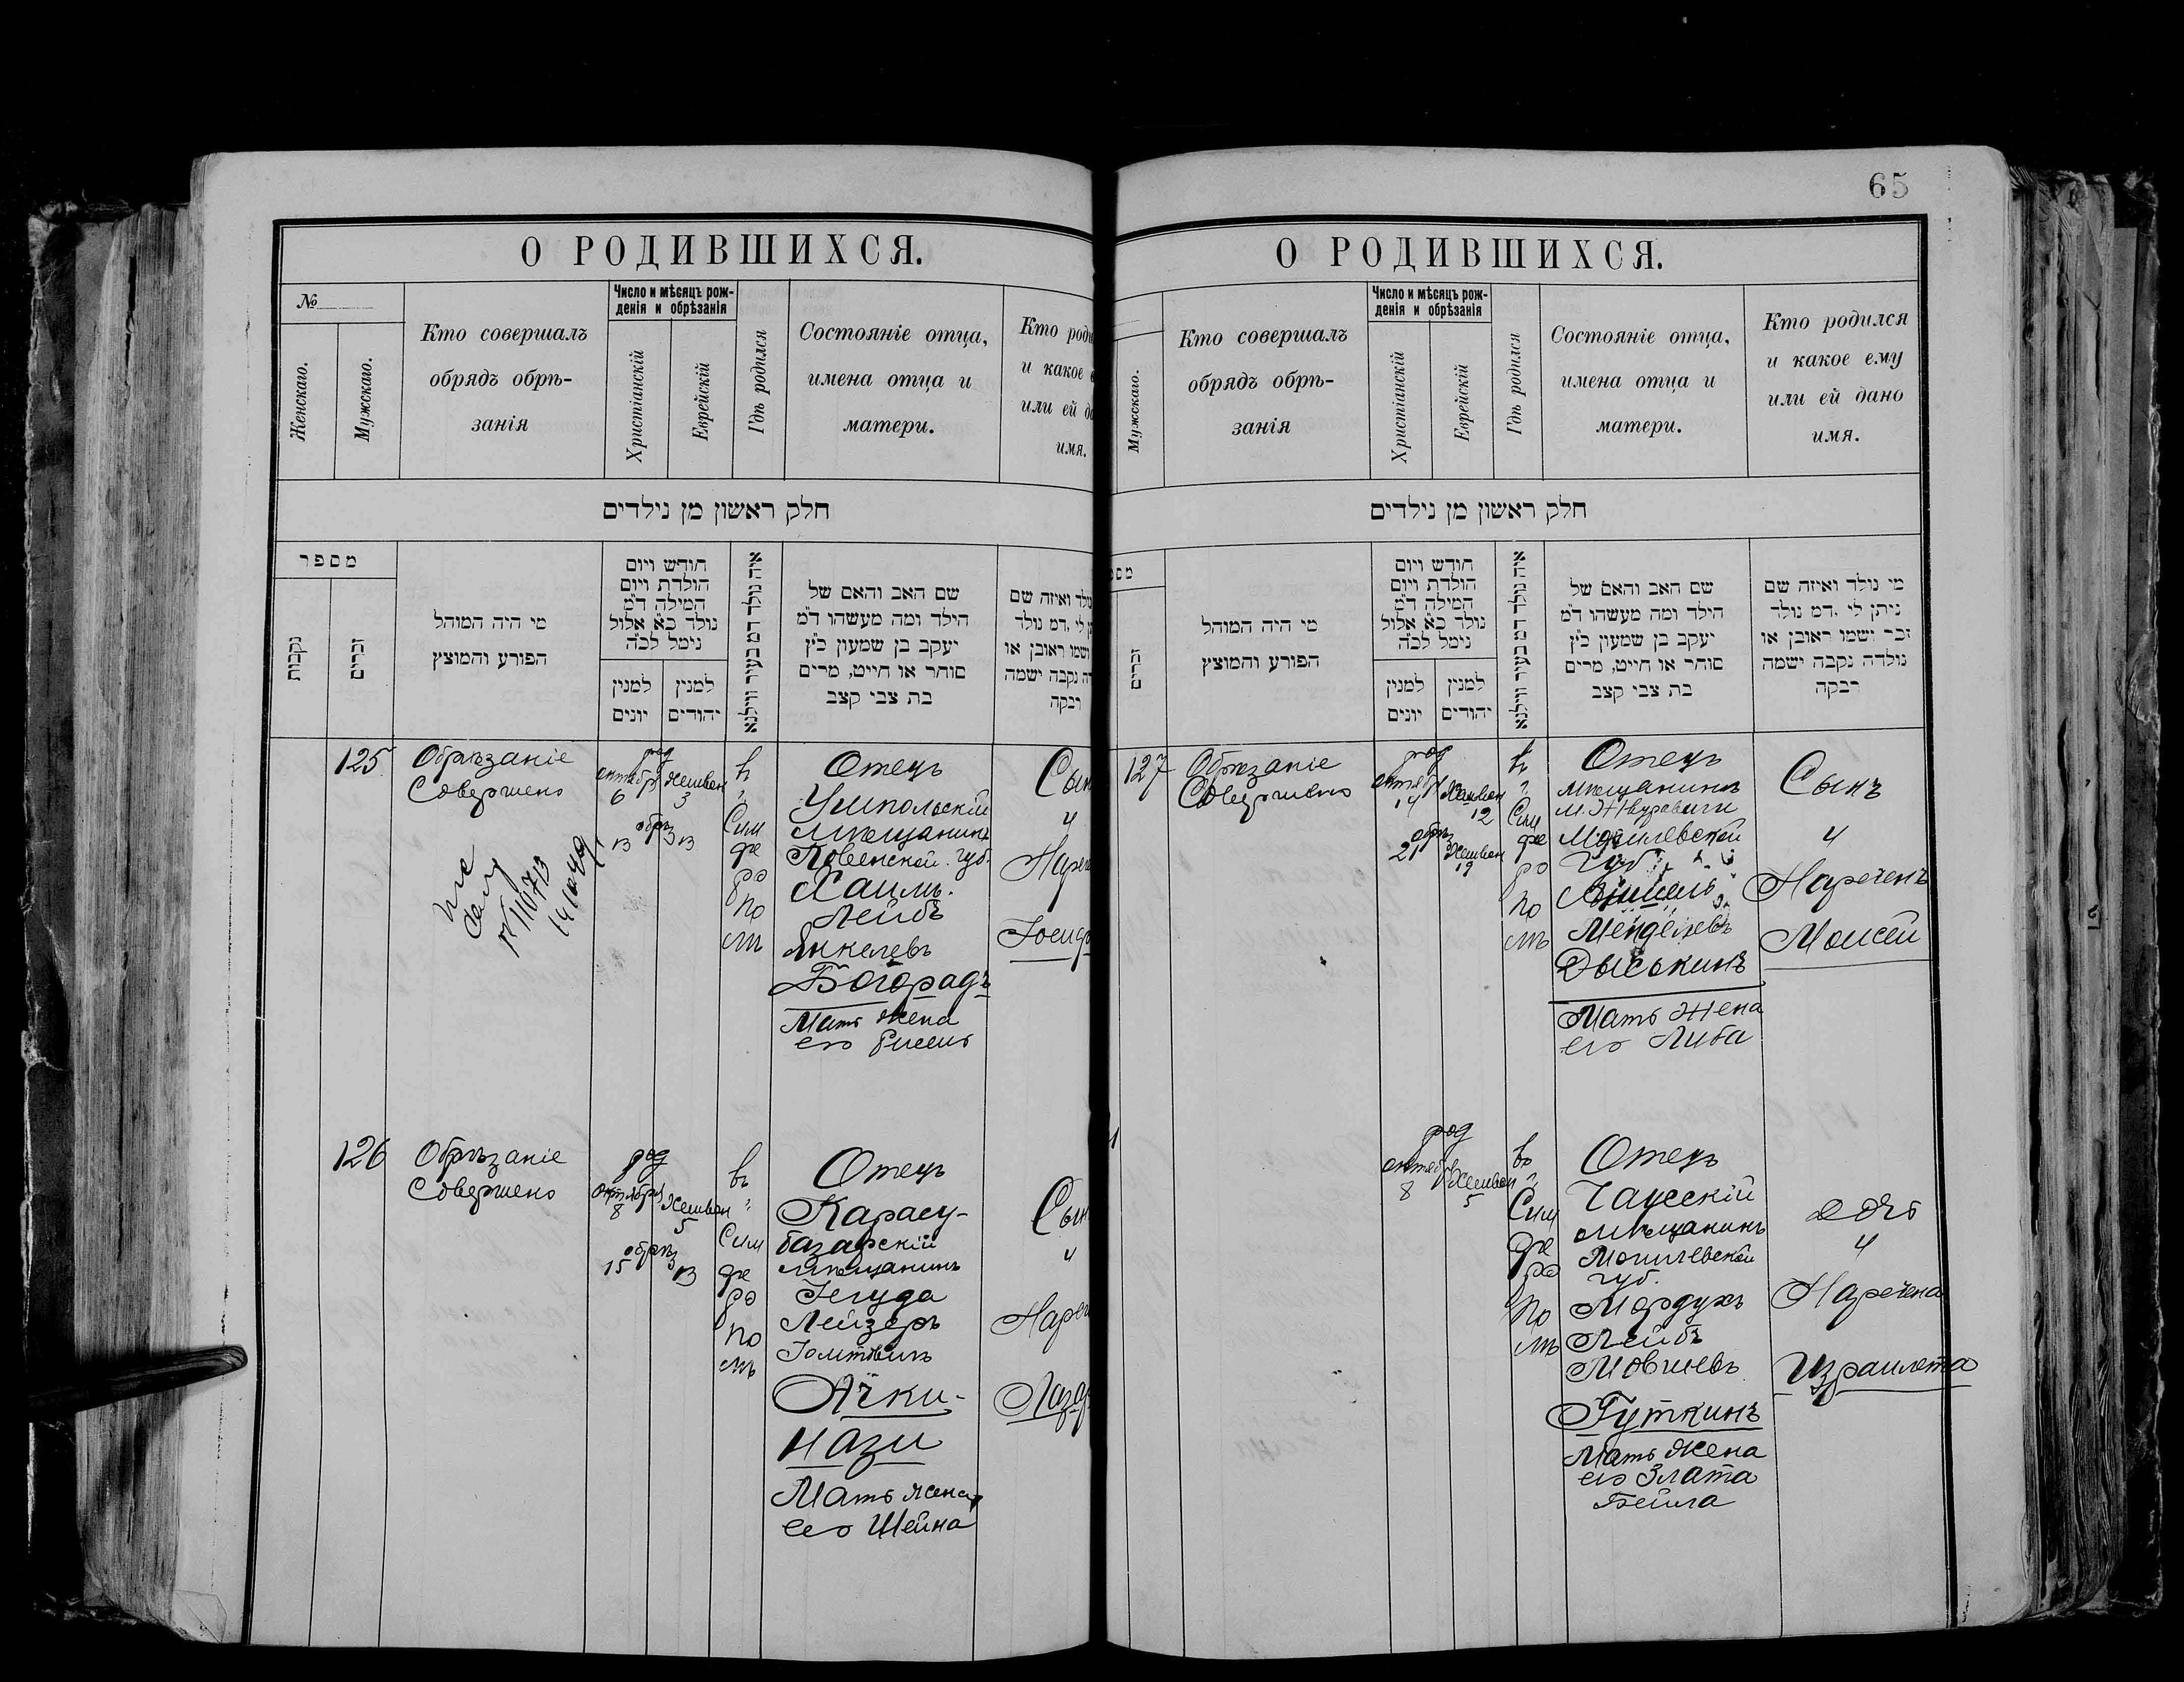 О РОДИВШИХСЯ.
№
Женскаго.
Мужскаго.
Кто совершалъ
обрядъ обрѣ-
занія
Число и мѣсяцъ рож-
денія и обрѣзанія
Христіанскій
Еврейскій
Гдѣ родился
Состояніе отца,
имена отца и
матери.
Кто роди
и какое
или ей д
имя.
חלק ראשון מן נילדים
מספר
נקבות
זכרים
מי היה המוהל
הפורע והמוצץ
חודש ויום
הולדת ויום
המילה ד״מ
נולד כ״א אלול
נימל לכ״ה
למנין
יונים
למנין
יהודים
איה נולד דמ בעיר ווילנא
שם האב והאם של
הילד ומה מעשהו ד״מ
יעקב בן שמעון כ״ץ
סוחר או חייט, מרים
בת צבי קצב
ולד ואיזה שם
לי .דמ נולד
ושמו ראובן או
נקבה ישמה
רבקה
125
Обрѣзаніе
Совершено
род
октябр
6
Хешван
3
обрѣз
13
въ
Сим
фе
ро
по
лѣ
Отецъ
Ушпольскій
мѣщанинъ
Ковенской губ.
Хаимъ
Лейбъ
Янкелевъ
Богорадъ
Мать жена
его
Сын
и
Нареч
Іосиф
126
Обрѣзаніе
Совершено
род
Октября
8
Хешван
5
обрѣз
15
13
въ
Сим
фе
ро
по
лѣ
Отецъ
Карасу-
базарскій
мѣщанинъ
Іегуда
Лейзеръ
Ачки-
нази
Мать жена
его Шейна
Сын
и
Нареч
Лаза
65
О РОДИВШИХСЯ.
Мужскаго.
Кто совершалъ
обрядъ обрѣ-
занія
Число и мѣсяцъ рож-
денія и обрѣзанія
Христіанскій
Еврейскій
Гдѣ родился
Состояніе отца,
имена отца и
матери.
Кто родился
и какое ему
или ей дано
имя.
חלק ראשון מן נילדים
זכרים
מי היה המוהל
הפורע והמוצץ
חודש ויום
הולדת ויום
המילה ד״מ
נולד כ״א אלול
נימל לכ״ה
למנין
יונים
למנין
יהודים
איה נולד דמ בעיר ווילנא
שם האב והאם של
הילד ומה מעשהו ד״מ
יעקב בן שמעון כ״ץ
סוחר או חייט, מרים
בת צבי קצב
מי נולד ואיזה שם
ניתן לי .דמ נולד
זכר ישמו ראובן או
נולדה נקבה ישמה
רבקה
127
Обрѣзаніе
Совершено
род
октябр
14
Хешван
12
обрѣз
21
Хешван
19
въ
Сим
фе
ро
по
лѣ
Отецъ
мѣщанинъ
м. Журавичи
Могилевской
губ.
Менделевъ
Дыськинъ
Мать жена
его Либа
Сынъ
и
Нареченъ
Моисей
род
октяб
8
Хешван
5
въ
Сим
фе
ро
по
лѣ
Отецъ
Чаусскій
мѣщанинъ
Могилевской
губ.
Мордухъ
Лейбъ
Мовшевъ
Гуткинъ
Мать жена
его Злата
Бейла
дочь
и
Наречена